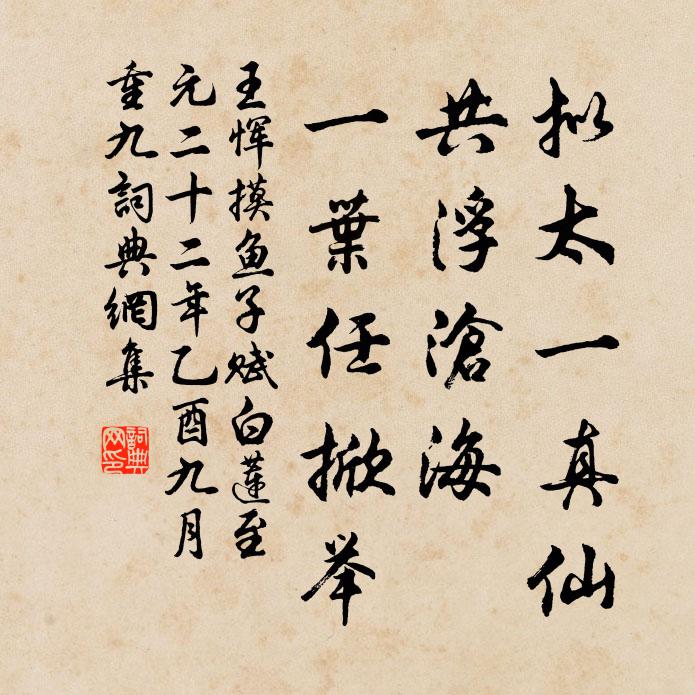 拟太一真仙
共浮滄海
一葉任掀举
王恽摸鱼子赋白蓮至
元二十二年乙酉九月
重九詞典網集
詞典
网印